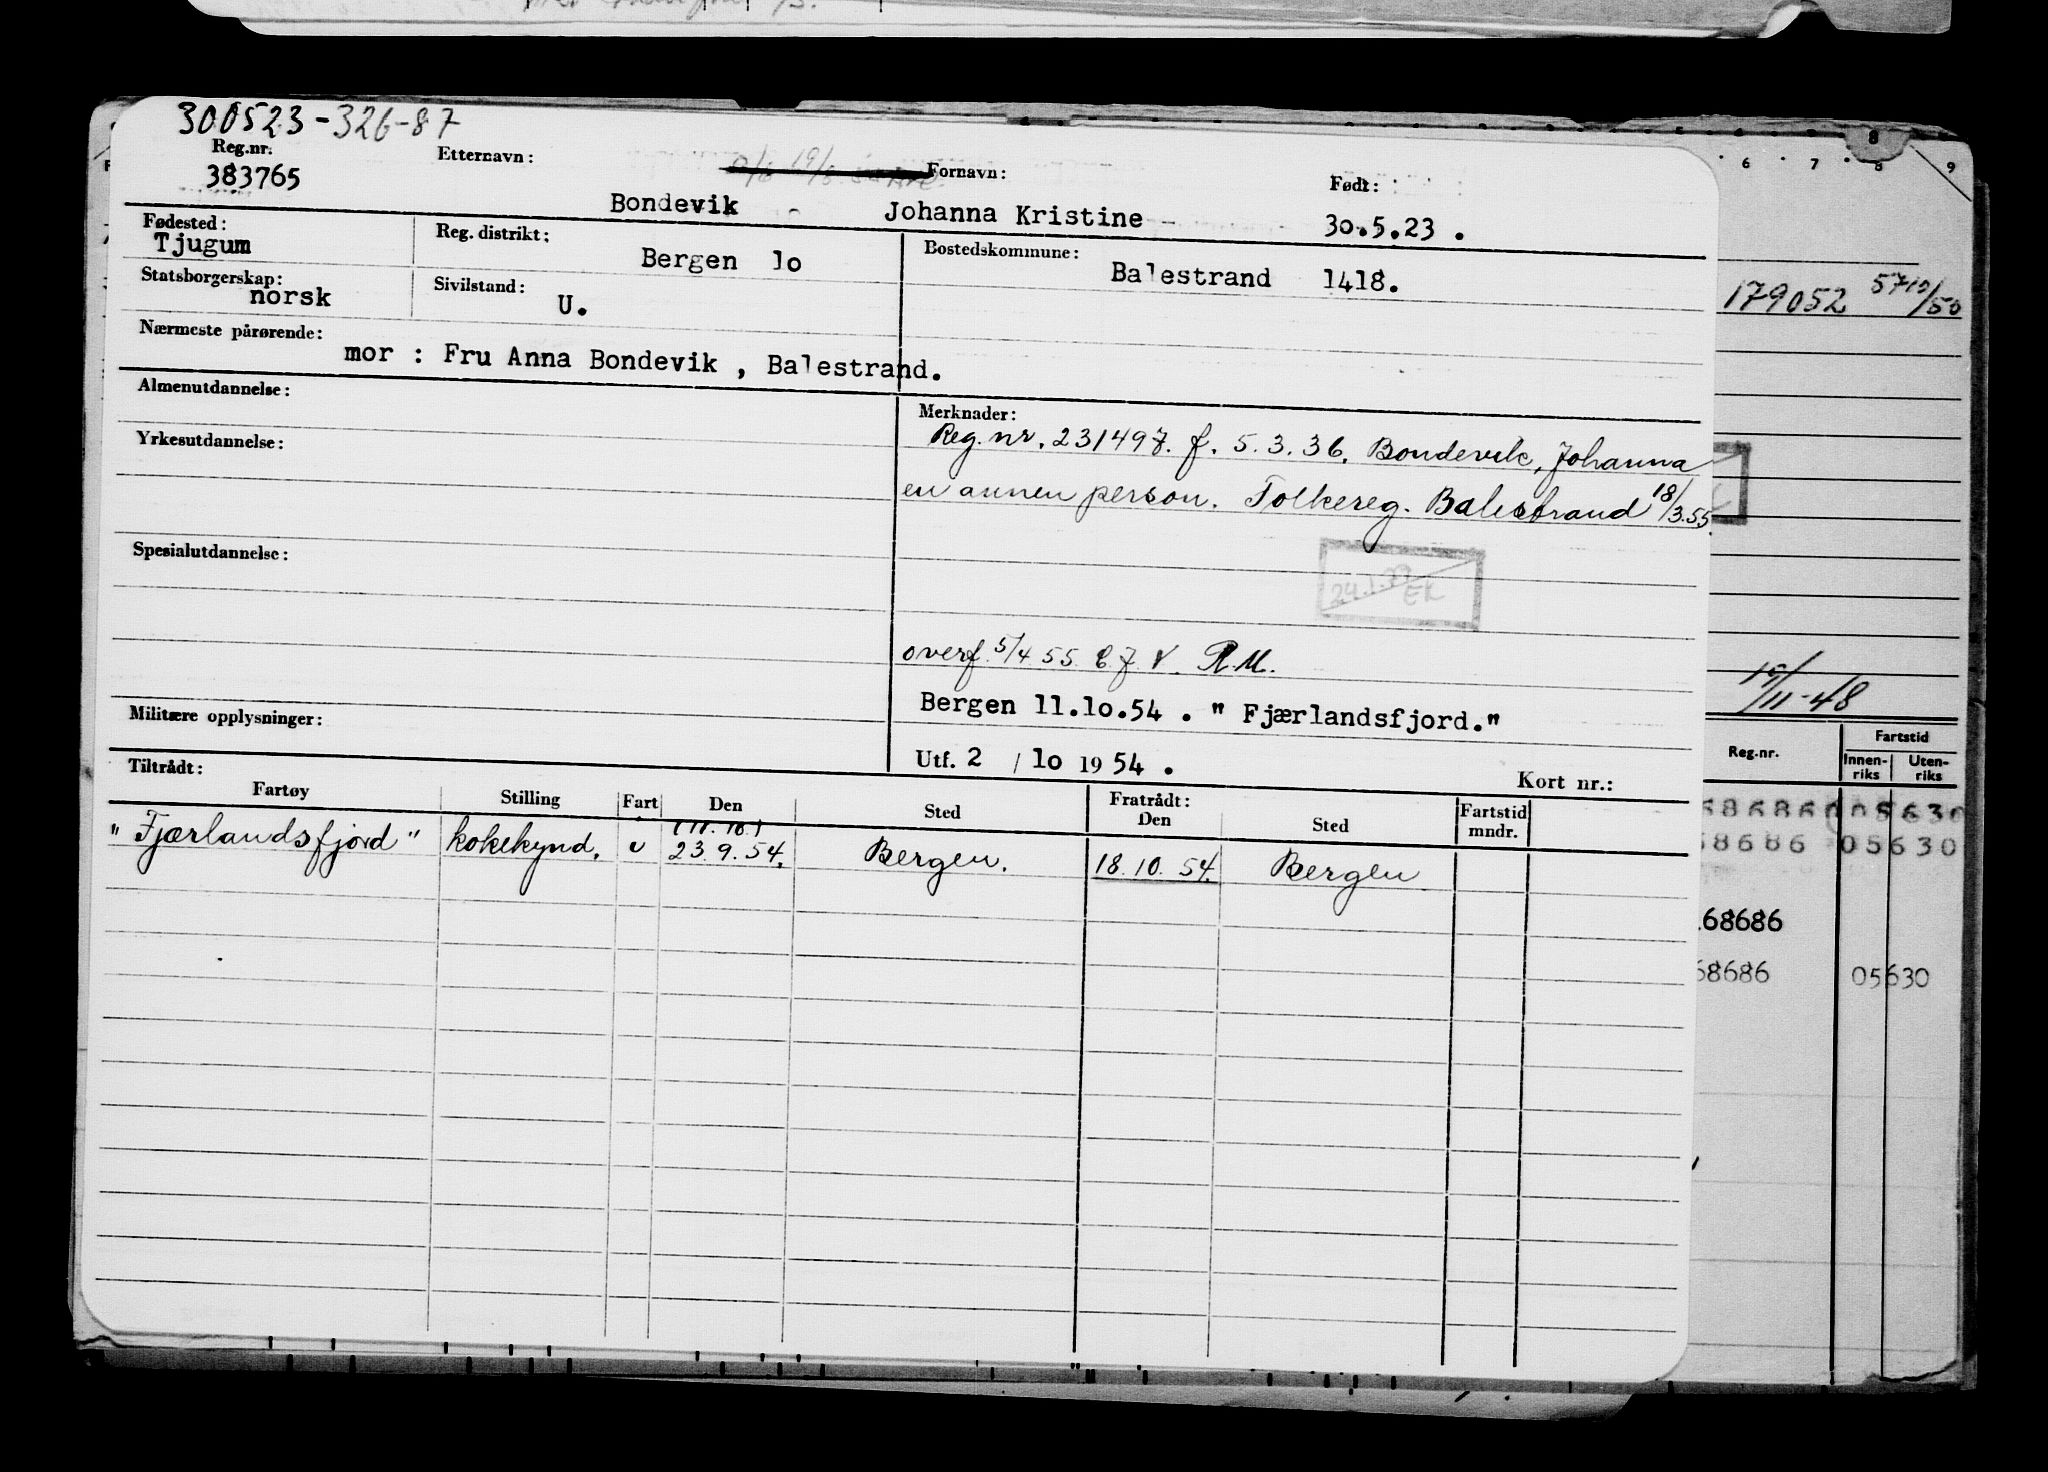 300523-326-87
Reg.nr.
Etternavn:
Fornavn:
Født:
383765
Bondevik Johanna Kristine 30.5.23.
Fødested: Reg. distrikt: Bostedskommune:
Tjugum Bergen lo Balestrand 1418.
Statsborgerskap: Sivilstand:
norsk U.
Nærmeste pårørende:
mor : Fru Anna Bondevik , Balestrand.
Almenutdannelse:
Merknader:
Reg. nr. 231497. f. 5.3.36. Bondevik, Johanna
Yrkesutdannelse:
en annen person. Folkereg. Balestrand 18/3.55.
Spesialutdannelse:
overf. 5/4 55. R.M.
Bergen 11.lo.54 . " Fjærlandsfjord."
Militære opplysninger:
Utf. 2 / lo 19 54 .
Kort nr.:
Tiltrådt: Fratrådt:
Fartøy Stilling Fart Den Sted Den Sted Fartstid mndr.
(11.10.)
"Fjærlandsfjord" kokekynd. u 23.9.54. Bergen. 18.10.54. Bergen
6 7 8 9
8
179052 57 10/50
10/11-48
Reg.nr. Fartstid
Innen-riks Uten-riks
686860 05630
68686 05630
68686
68686 05630